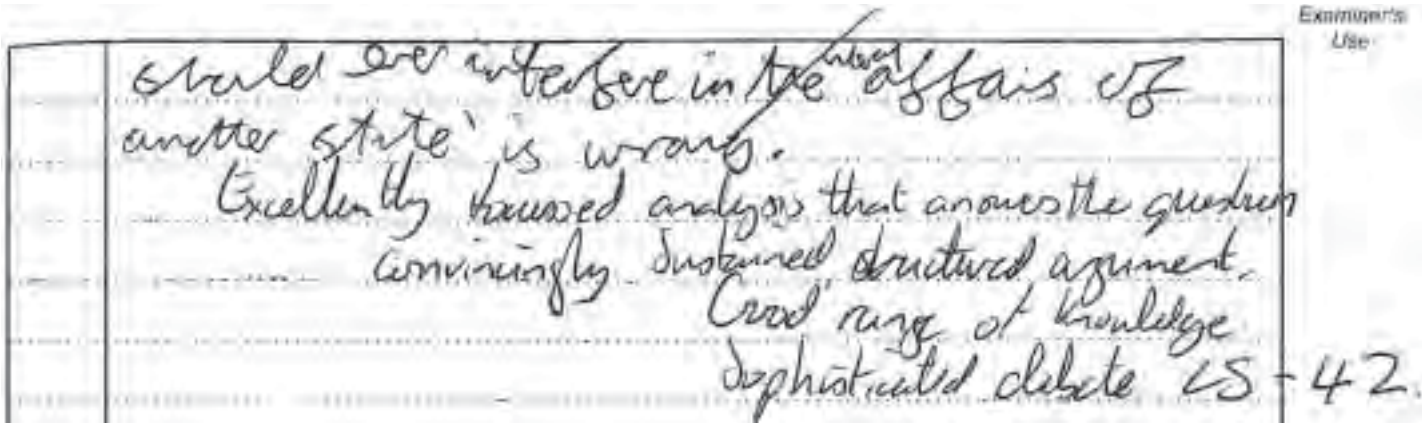 Examiner's
Use
should ever interfere in the internal affairs of
another state' is wrong.
Excellently focussed analysis that answers the question
convincingly. Sustained, structured argument.
Good range of knowledge.
Sophisticated debate LS - 42.